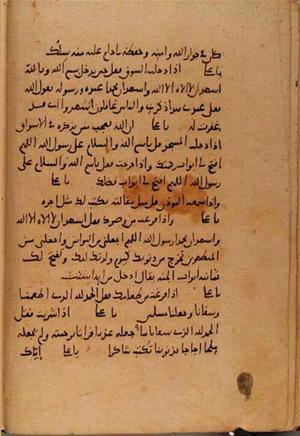 كان في جوار الله وامنه وحفظه
يا علي اذا دخلت السوق فقل حين تدخل بسم الله وبالله
اشهد ان لا اله الا الله واشهد ان محمدا عبده ورسوله يقول الله
عبدي ذكرني والناس غافلون اشهدوا اني قد
غفرت له يا علي ان الله يعجب من يذكره في الاسواق
اذا دخلت المسجد فقل بسم الله والسلام على رسول الله اللهم
افتح لي ابواب رحمتك واذا خرجت فقل بسم الله والسلام على
رسول الله اللهم افتح لي ابواب فضلك يا علي
واذا سمعت المؤذن قل مثل مقالته يكتب لك مثل اجره
يا علي واذا فرغت من وضوءك فقل اشهد ان لا اله الا الله
واشهد ان محمدا رسول الله اللهم اجعلني من التوابين واجعلني من
المتطهرين تخرج من ذنوبك كيوم ولدتك امك وتفتح لك
ثمانية ابواب الجنة يقال ادخل من ايها شئت
يا علي اذا فرغت من طعامك فقل الحمد لله الذي اطعمنا
وسقانا وجعلنا مسلمين يا علي اذا شربت فقل
الحمد لله الذي سقانا ماء جعله عذبا فراتا برحمته ولم يجعله
ملحا اجاجا بذنوبنا تكتب شاكرا يا علي اياك